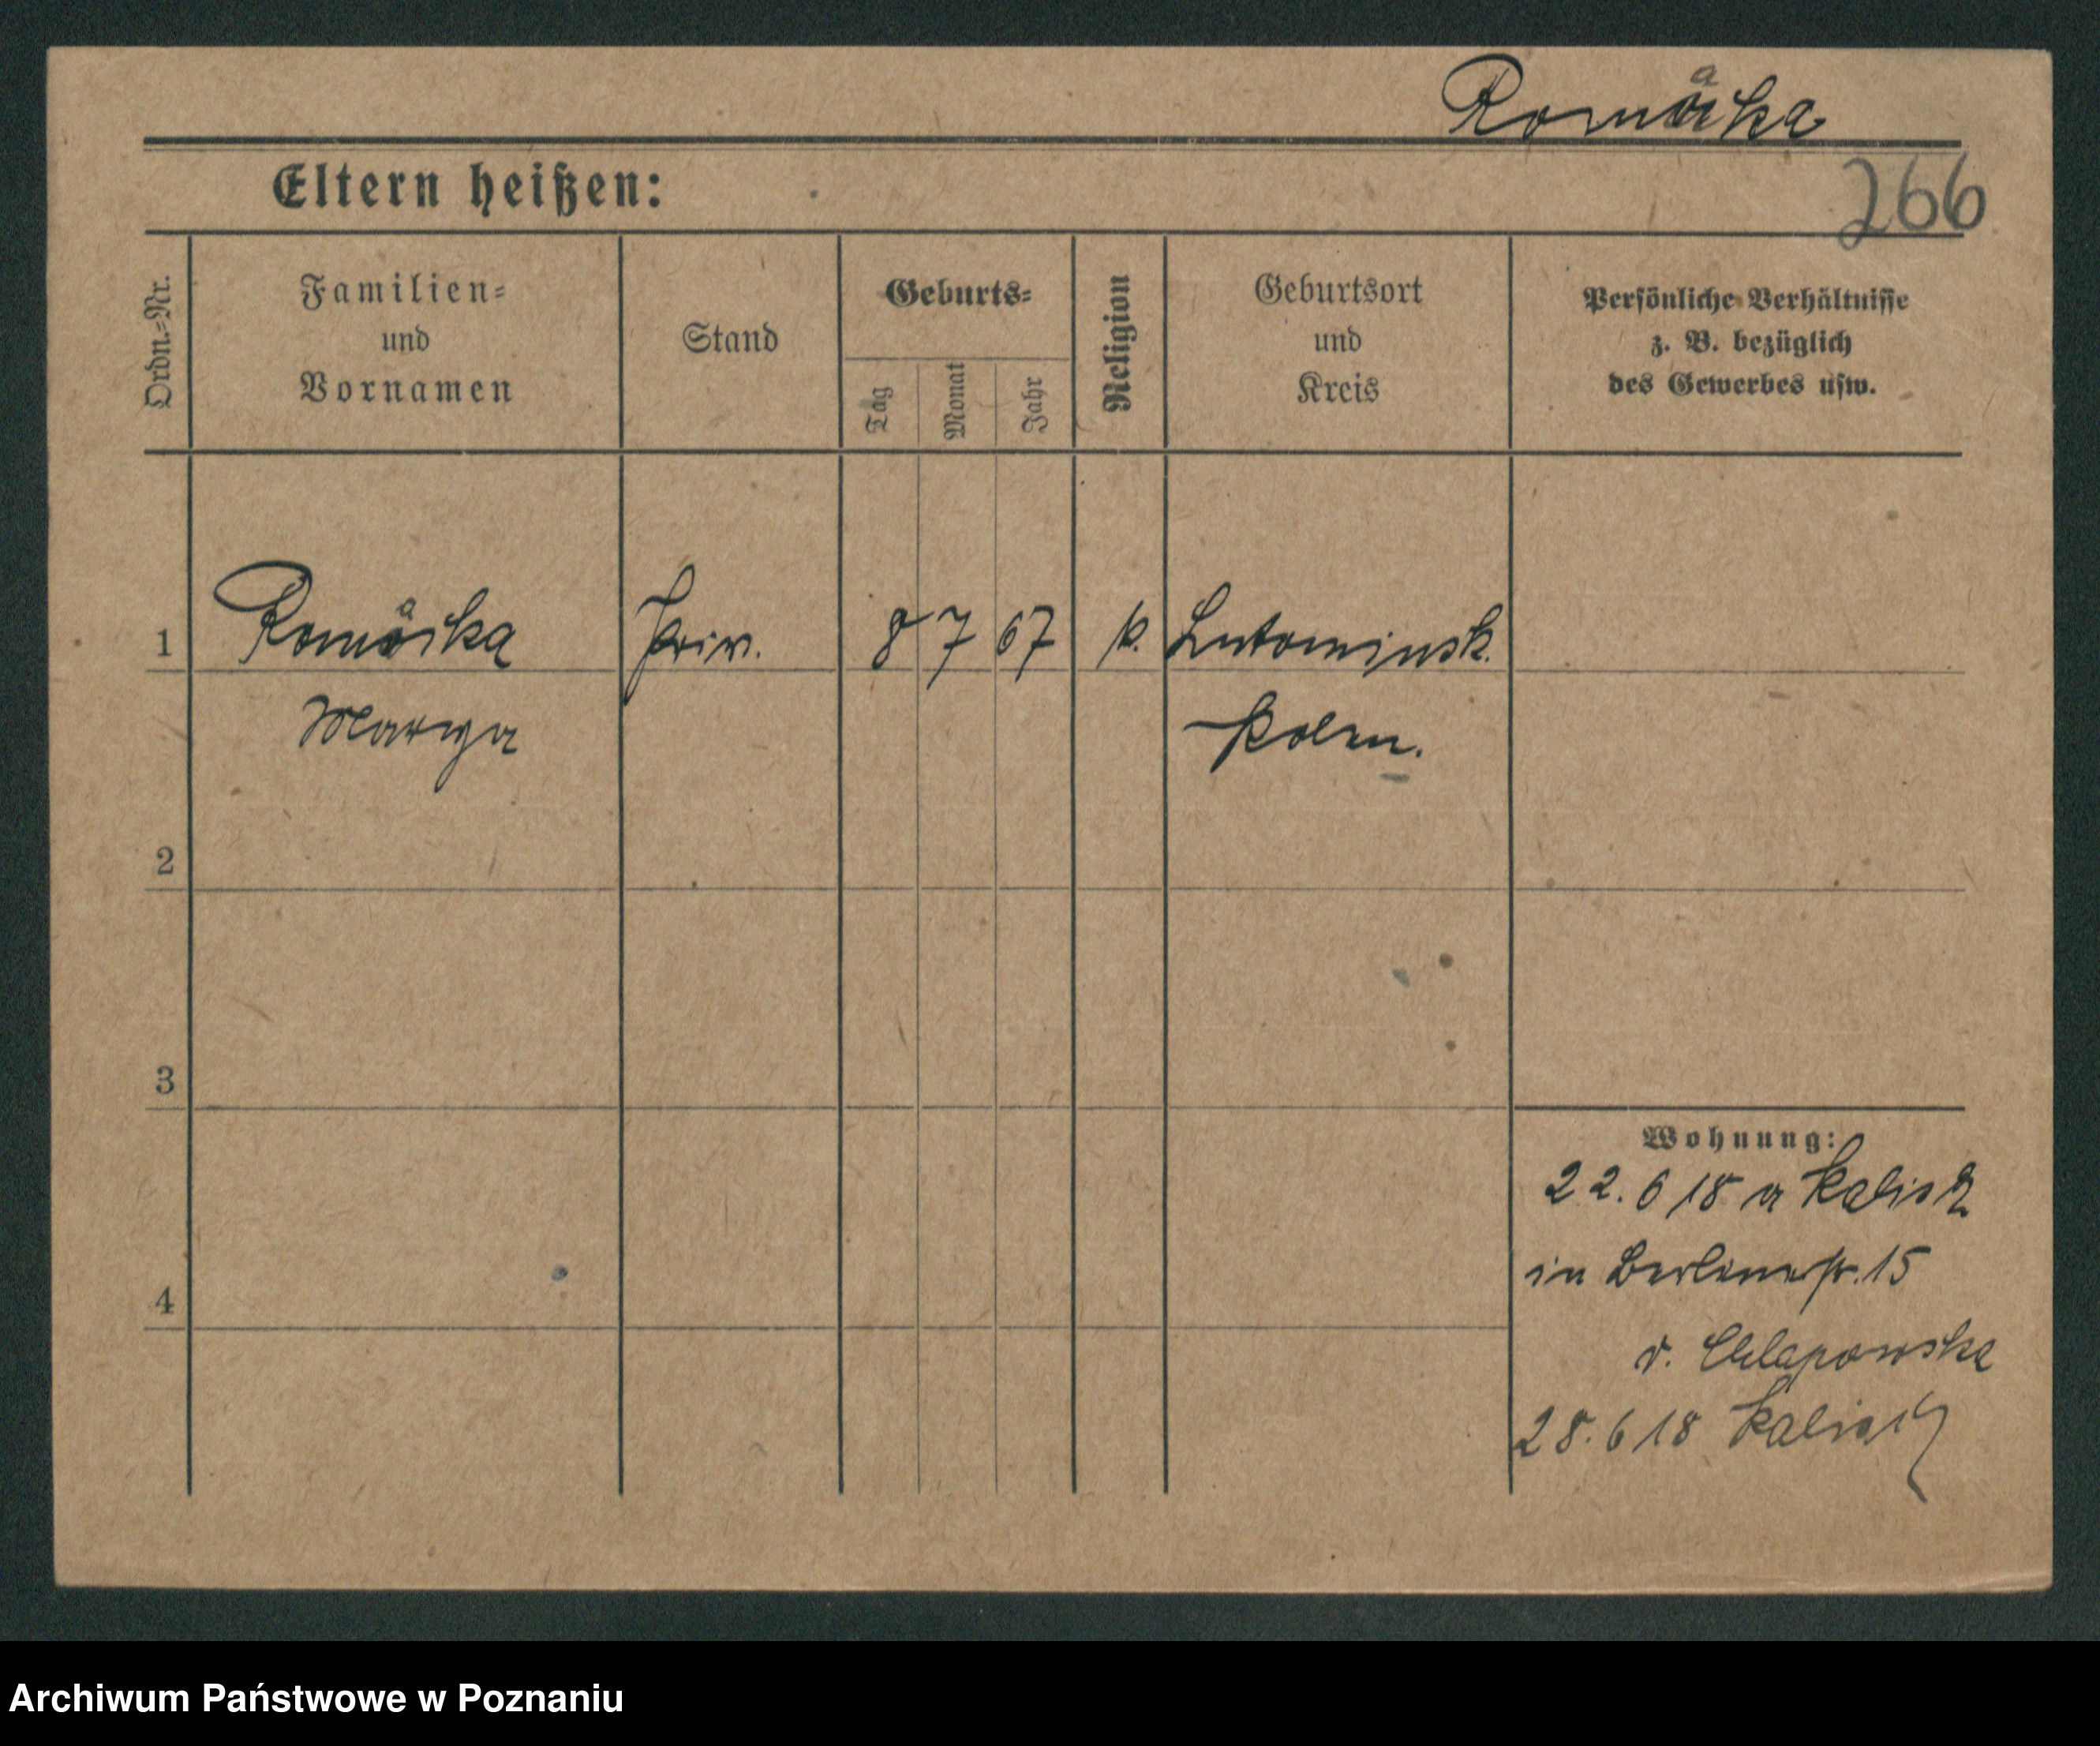 266
Eltern heißen:
Ordn.-Nr.
Familien-
und
Vornamen
Stand
Geburts-
Tag
Monat
Jahr
Religion
Geburtsort
und
Kreis
Persönliche Verhältnisse
z. B. bezüglich
des Gewerbes usw.
1 Priv. 8 7 67 k. Lutominsk.
Marya Polen.
2
3
4
Wohnung:
22.6 18 a Kalisch
in Berlinerstr. 15
v. Chlapowska
28.6 18 Kalisch
Archiwum Państwowe w Poznaniu